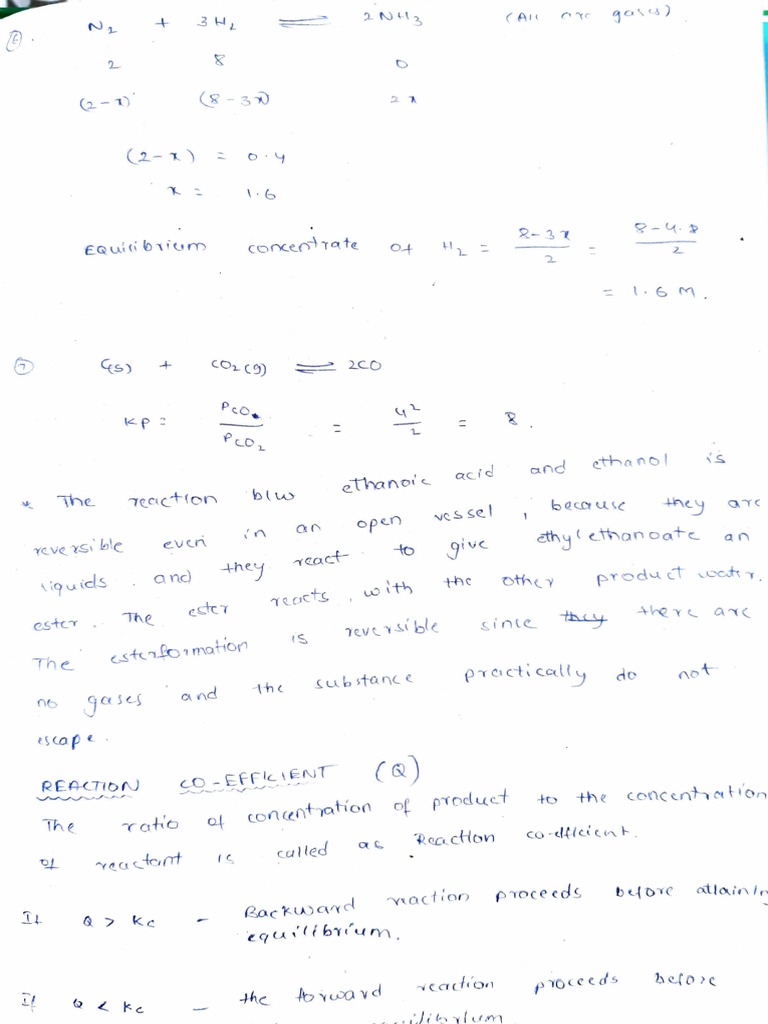 6. N2 + 3H2 ⇌ 2NH3 (All are gases)
2 8 0
(2-x) (8-3x) 2x
(2-x) = 0.4
x = 1.6
Equilibrium concentrate of H2 = 8-3x/2 = 8-4.8/2
= 1.6 M.
7 C(s) + CO2(g) ⇌ 2CO
KP = PCO/PCO2 = 4²/2 = 8.
* The reaction b/w ethanoic acid and ethanol is
reversible even in an open vessel, because they are
liquids. and they react to give ethylethanoate an
ester. The ester reacts, with the other product water.
The esterformation is reversible since they there are
no gases and the substance practically do not
escape.
REACTION CO-EFFICIENT (Q)
The ratio of concentration of product to the concentration
of reactant is called as Reaction co-efficient.
If Q > Kc - Backward reaction proceeds before attaining
equilibrium.
If Q < Kc - the forward reaction proceeds before
equilibrium